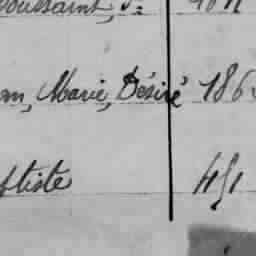 oussaint, J.
am, Marie, Désiré 186
ptiste 451